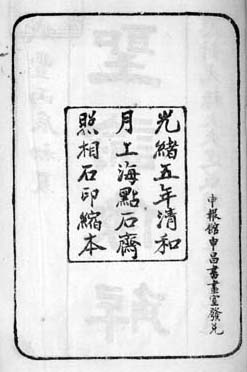 光緒五年清和
月上海點石齋
照相石印縮本
申報館申昌書畫室發兌